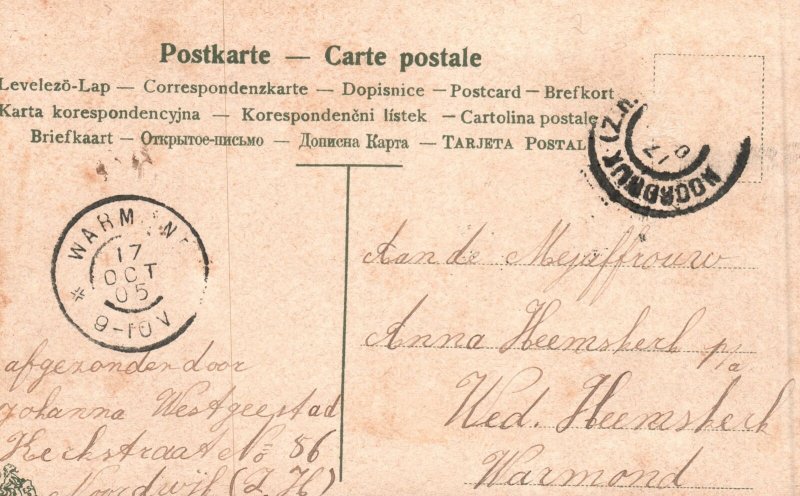 Postkarte — Carte postale
Levelezö-Lap — Correspondenzkarte — Dopisnice — Postcard — Brefkort
Karta korespondencyjna — Korespondenčni lístek — Cartolina postale
Briefkaart — Открытое-письмо — Дописна Карта — TARJETA POSTAL
NOORDWIJK (Z.H.
WARMOND
17
OCT
05
9-10V
Aan de Mejuffrouw
Anna Heemskerk p/a
Wed. Heemskerk
Warmond
afgezonden door
Johanna Westgeest
Kerkstraat No 86
Noordwijk (Z.H)